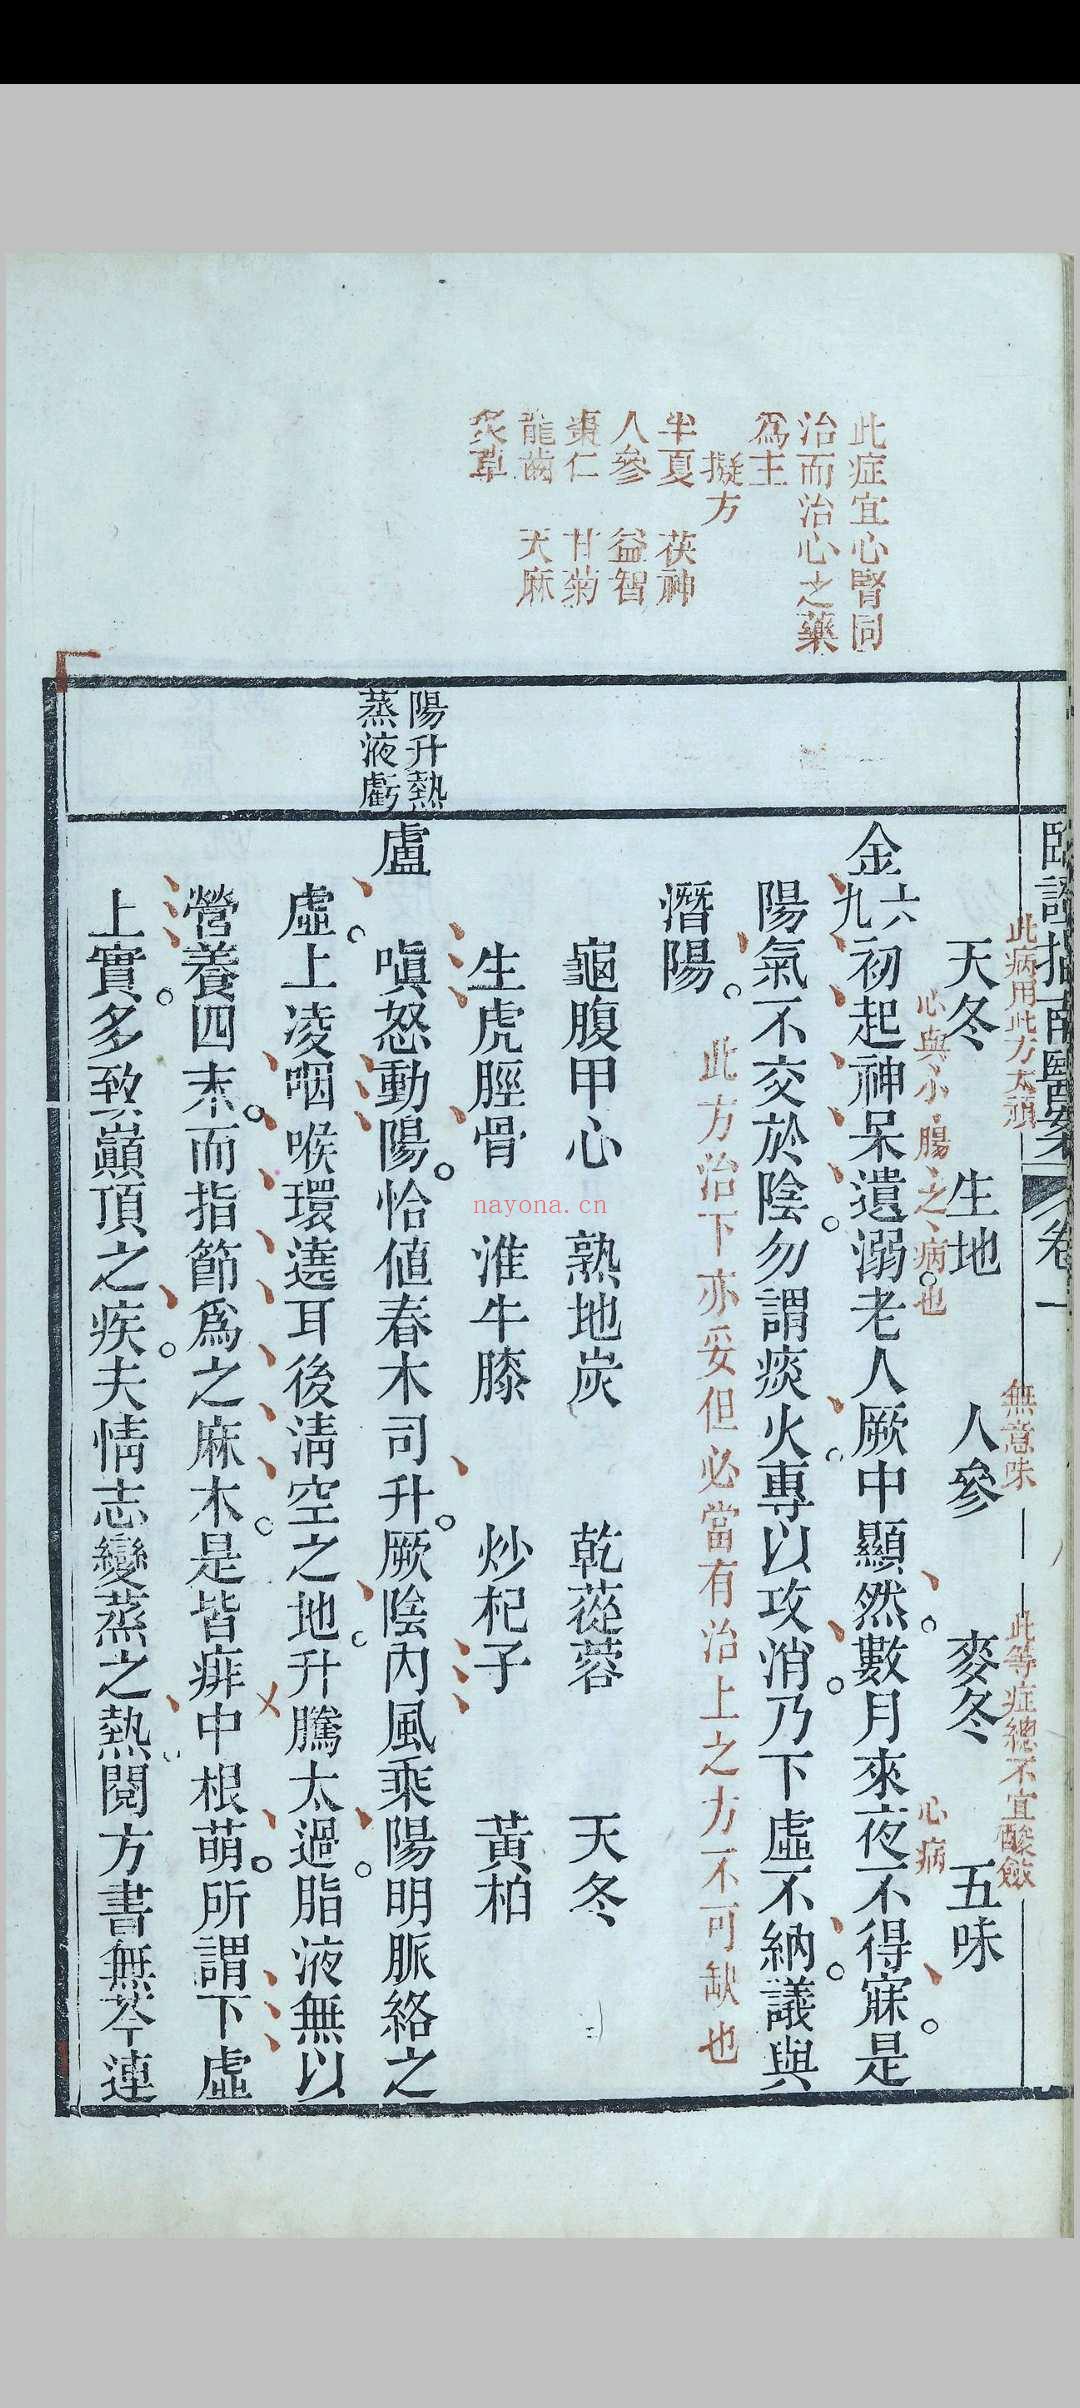 臨證指南醫案 卷一
此病用此方太頑
無意味
此等症總不宜酸斂
天冬 生地 人參 麥冬 五味
心與小腸之病也
心病
金六九初起神呆遺溺老人厥中顯然數月來夜不得寐是
陽氣不交於陰勿謂痰火專以攻消乃下虛不納議與
潛陽
此方治下亦妥但必當有治上之方不可缺也
龜腹甲心 熟地炭 乾蓯蓉 天冬
生虎脛骨 淮牛膝 炒杞子 黃柏
此症宜心腎同
治而治心之藥
爲主
擬方
半夏 茯神
人參 益智
棗仁 甘菊
龍齒 天麻
炙草
陽升熱
蒸液虧
盧
嗔怒動陽恰值春木司升厥陰內風乘陽明脈絡之
虛上凌咽喉環遶耳後清空之地升騰太過脂液無以
營養四末而指節爲之麻木是皆痱中根萌所謂下虛
上實多致巔頂之疾夫情志變蒸之熱閱方書無芩連
nayona.cn